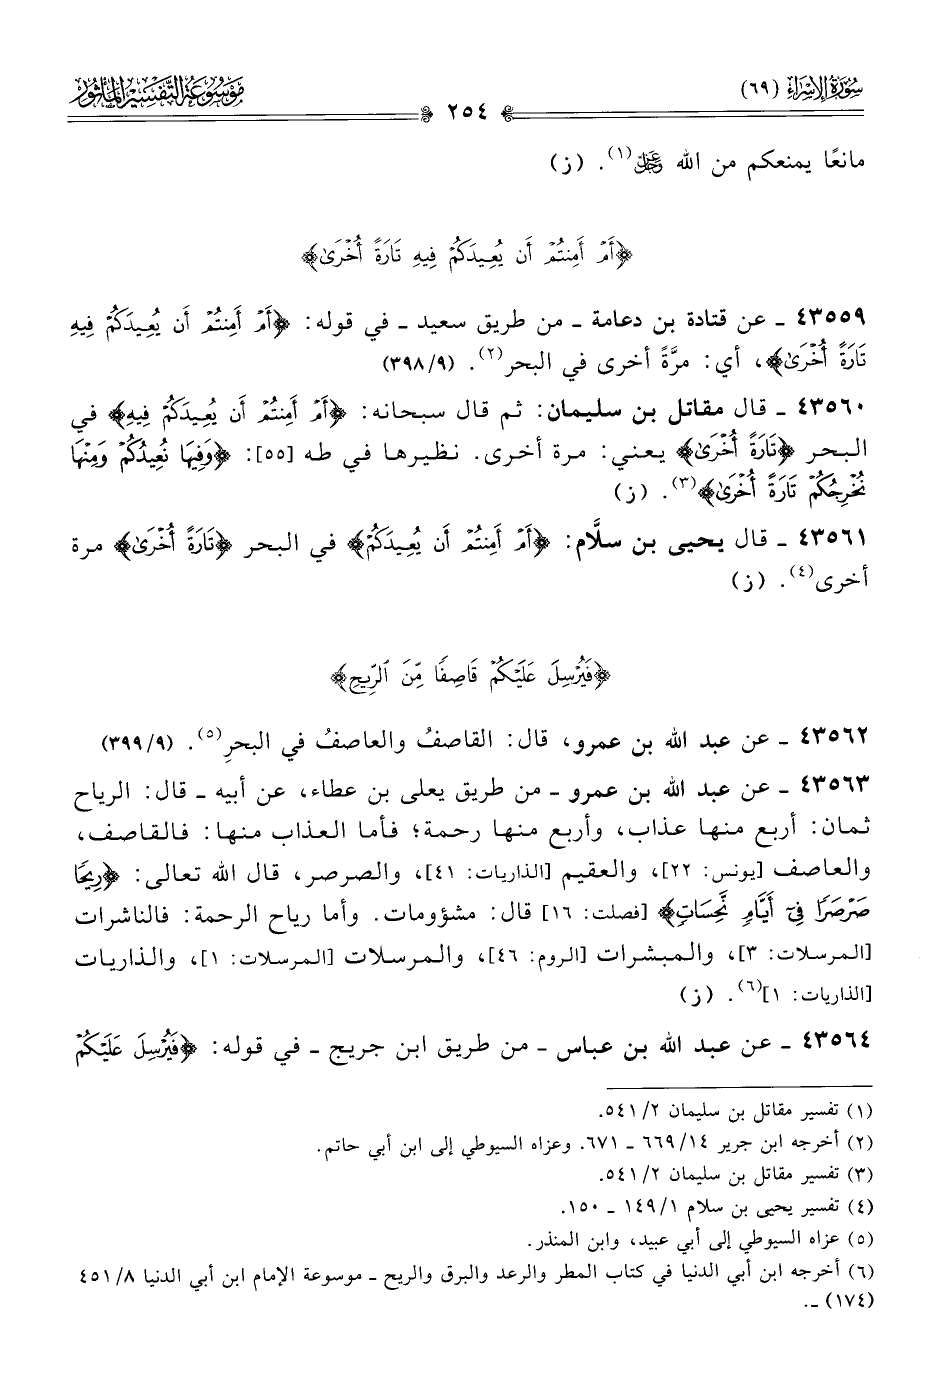 سُورَةُ الإِسْرَاء (٦٩)
٢٥٤
مَوْسُوعَةُ التَّفْسِيرِ المَأْثُورِ
مانعًا يمنعكم من الله عَزَّ وَجَلَّ(١). (ز)
﴿أَمۡ أَمِنتُمۡ أَن يُعِيدَكُمۡ فِيهِ تَارَةً أُخۡرَىٰ﴾
٤٣٥٥٩ ـ عن قتادة بن دعامة ـ من طريق سعيد ـ في قوله: ﴿أَمۡ أَمِنتُمۡ أَن يُعِيدَكُمۡ فِيهِ
تَارَةً أُخۡرَىٰ﴾، أي: مرَّةً أخرى في البحر(٢). (٣٩٨/٩)
٤٣٥٦٠ ـ قال مقاتل بن سليمان: ثم قال سبحانه: ﴿أَمۡ أَمِنتُمۡ أَن يُعِيدَكُمۡ فِيهِ﴾ في
البحر ﴿تَارَةً أُخۡرَىٰ﴾ يعني: مرة أخرى. نظيرها في طه [٥٥]: ﴿وَفِيهَا نُعِيدُكُمۡ وَمِنۡهَا
نُخۡرِجُكُمۡ تَارَةً أُخۡرَىٰ﴾(٣). (ز)
٤٣٥٦١ ـ قال يحيى بن سلَّام: ﴿أَمۡ أَمِنتُمۡ أَن يُعِيدَكُمۡ﴾ في البحر ﴿تَارَةً أُخۡرَىٰ﴾ مرة
أخرى(٤). (ز)
﴿فَيُرۡسِلَ عَلَيۡكُمۡ قَاصِفٗا مِّنَ ٱلرِّيحِ﴾
٤٣٥٦٢ ـ عن عبد الله بن عمرو، قال: القاصفُ والعاصفُ في البحرِ(٥). (٣٩٩/٩)
٤٣٥٦٣ ـ عن عبد الله بن عمرو ـ من طريق يعلى بن عطاء، عن أبيه ـ قال: الرياح
ثمان: أربع منها عذاب، وأربع منها رحمة؛ فأما العذاب منها: فالقاصف،
والعاصف [يونس: ٢٢]، والعقيم [الذاريات: ٤١]، والصرصر، قال الله تعالى: ﴿رِيحٗا
صَرۡصَرٗا فِيٓ أَيَّامٖ نَّحِسَاتٖ﴾ [فصلت: ١٦] قال: مشؤومات. وأما رياح الرحمة: فالناشرات
[المرسلات: ٣]، والمبشرات [الروم: ٤٦]، والمرسلات [المرسلات: ١]، والذاريات
[الذاريات: ١](٦). (ز)
٤٣٥٦٤ ـ عن عبد الله بن عباس ـ من طريق ابن جريج ـ في قوله: ﴿فَيُرۡسِلَ عَلَيۡكُمۡ
(١) تفسير مقاتل بن سليمان ٥٤١/٢.
(٢) أخرجه ابن جرير ٦٦٩/١٤ ـ ٦٧١. وعزاه السيوطي إلى ابن أبي حاتم.
(٣) تفسير مقاتل بن سليمان ٥٤١/٢.
(٤) تفسير يحيى بن سلام ١٤٩/١ ـ ١٥٠.
(٥) عزاه السيوطي إلى أبي عبيد، وابن المنذر.
(٦) أخرجه ابن أبي الدنيا في كتاب المطر والرعد والبرق والريح ـ موسوعة الإمام ابن أبي الدنيا ٤٥١/٨
(١٧٤) ـ.